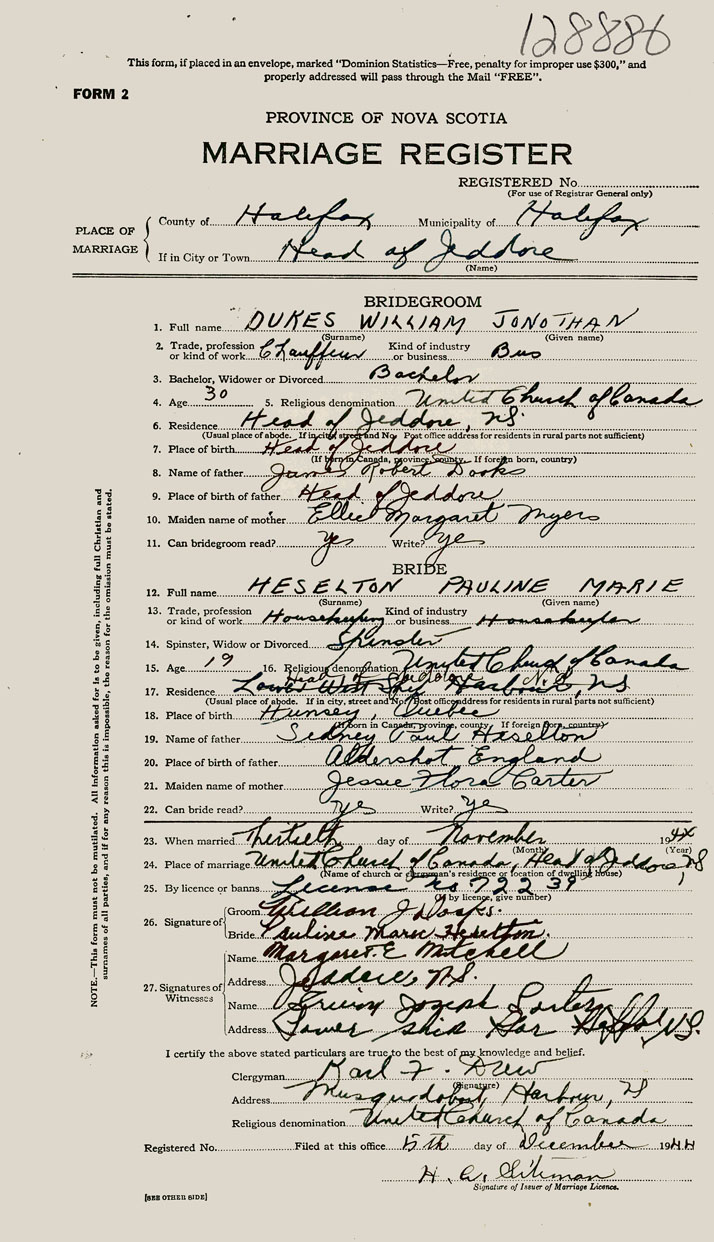 128886
This form, if placed in an envelope, marked "Dominion Statistics—Free, penalty for improper use $300," and
properly addressed will pass through the Mail "FREE".
FORM 2
PROVINCE OF NOVA SCOTIA
MARRIAGE REGISTER
REGISTERED No.
(For use of Registrar General only)
PLACE OF MARRIAGE
County of Halifax Municipality of Halifax
If in City or Town Head of Jeddore
(Name)
BRIDEGROOM
1. Full name DUKES WILLIAM JONOTHAN
(Surname) (Given name)
2. Trade, profession or kind of work Chauffeur Kind of industry or business Bus
3. Bachelor, Widower or Divorced Bachelor
4. Age 30 5. Religious denomination United Church of Canada
6. Residence Head of Jeddore, NS.
(Usual place of abode. If in city, street and No. Post office address for residents in rural parts not sufficient)
7. Place of birth Head of Jeddore
(If born in Canada, province, county. If foreign born, country)
8. Name of father James Robert Dooks
9. Place of birth of father Head of Jeddore
10. Maiden name of mother Ellie Margaret Myers
11. Can bridegroom read? yes Write? yes
BRIDE
12. Full name HESELTON PAULINE MARIE
(Surname) (Given name)
13. Trade, profession or kind of work Housekeeping Kind of industry or business Housekeeper
14. Spinster, Widow or Divorced Spinster
15. Age 19 16. Religious denomination United Church of Canada
Head of Jeddore N.S.
17. Residence Lower West Ship Harbour, NS
(Usual place of abode. If in city, street and No. Post office address for residents in rural parts not sufficient)
18. Place of birth Quebec
(If born in Canada, province, county. If foreign born, country)
19. Name of father Sidney Paul Heselton
20. Place of birth of father Aldershot England
21. Maiden name of mother Jessie Flora Carter
22. Can bride read? yes Write? yes
23. When married Thirtieth day of November 1944
(Month) (Year)
24. Place of marriage United Church of Canada, Head of Jeddore, NS
(Name of church or clergyman's residence or location of dwelling house)
25. By licence or banns License No 72239
(If by licence, give number)
26. Signature of
Groom William J Dooks.
Bride Pauline Marie Heselton.
27. Signatures of Witnesses
Name Margaret E Mitchell
Address Jeddore, N.S.
Name Joseph
Address Lower Ship Har Hfx Co N.S.
I certify the above stated particulars are true to the best of my knowledge and belief.
Clergyman Karl F. Drew
(Signature)
Address Musquodoboit Harbour, NS
Religious denomination United Church of Canada
Registered No. Filed at this office 5th day of December 1944
H. A.
Signature of Issuer of Marriage Licence.
[SEE OTHER SIDE]
NOTE.—This form must not be mutilated. All information asked for is to be given, including full Christian and
surnames of all parties, and if for any reason this is impossible, the reason for the omission must be stated.